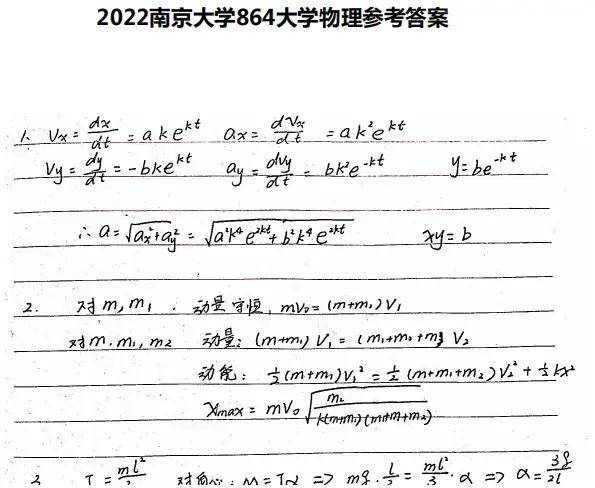 2022南京大学864大学物理参考答案
1. Vx = dx/dt = a k e^{kt} ax = dVx/dt = a k² e^{kt}
Vy = dy/dt = -bke^{kt} ay = dVy/dt = bk²e^{-kt} y = be^{-kt}
∴ a = √(ax²+ay²) = √(a²k⁴e^{2kt} + b²k⁴e^{2kt}) xy = b
2. 对 m, m₁ . 动量守恒, mV₀ = (m+m₁)V₁
对 m. m₁, m₂ 动量: (m+m₁) V₁ = (m₁+m₂+m) V₂
动能: ½(m+m₁)V₁² = ½(m+m₁+m₂)V₂² + ½kx²
Xmax = mV₀ √(m₂/(k(m+m₁)(m+m+m₂)))
3. I = ml²/ M = Iα => mg · l/2 = ml²/3 · α => α = 3g/2l